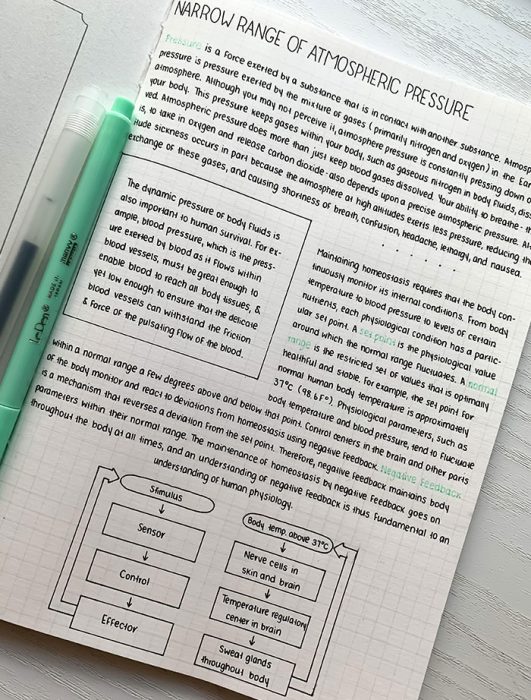 NARROW RANGE OF ATMOSPHERIC PRESSURE
Pressure is a force exerted by a substance that is in contact with another substance. Atmosp
pressure is pressure exerted by the mixture of gases (primarily nitrogen and oxygen) in the Ear
atmosphere. Although you may not perceive it, atmosphere pressure is constantly pressing down o
your body. This pressure keeps gases within your body, such as gaseous nitrogen in body fluids, diss
ved. Atmospheric pressure does more than just keep blood gases dissolved. Your ability to breathe - th
is, to take in oxygen and release carbon dioxide - also depends upon a precise atmospheric pressure. Al
itude sickness occurs in part because the atmosphere at high altitudes exerts less pressure, reducing the
exchange of these gases, and causing shortness of breath, confusion, headache, lethargy, and nausea.
The dynamic pressure of body fluids is
also important to human survival. For ex-
ample, blood pressure, which is the press-
ure exerted by blood as it flows within
blood vessels, must be great enough to
enable blood to reach all body tissues, &
yet low enough to ensure that the delicate
blood vessels can withstand the friction
& force of the pulsating flow of the blood.
Maintaining homeostasis requires that the body con-
tinuously monitor its internal conditions. From body
temperature to blood pressure to levels of certain
nutrients, each physiological condition has a partic-
ular set point. A set point is the physiological value
around which the normal range fluctuates. A normal
range is the restricted set of values that is optimally
healthful and stable. For example, the set point for
normal human body temperature is approximately
37°C (98.6F°). Physiological parameters, such as
body temperature and blood pressure, tend to fluctuate
within a normal range a few degrees above and below that point. Control centers in the brain and other parts
of the body monitor and react to deviations from homeostasis using negative feedback. Negative Feedback
is a mechanism that reverses a deviation from the set point. Therefore, negative feedback maintains body
parameters within their normal range. The maintenance of homeostasis by negative feedback goes on
throughout the body at all times, and an understanding of negative feedback is thus fundamental to an
understanding of human physiology.
Stimulus
Sensor
Control
Effector
Body temp. above 37°C
Nerve cells in
skin and brain
Temperature regulatory
center in brain
Sweat glands
throughout body
MADE IN
JAPAN